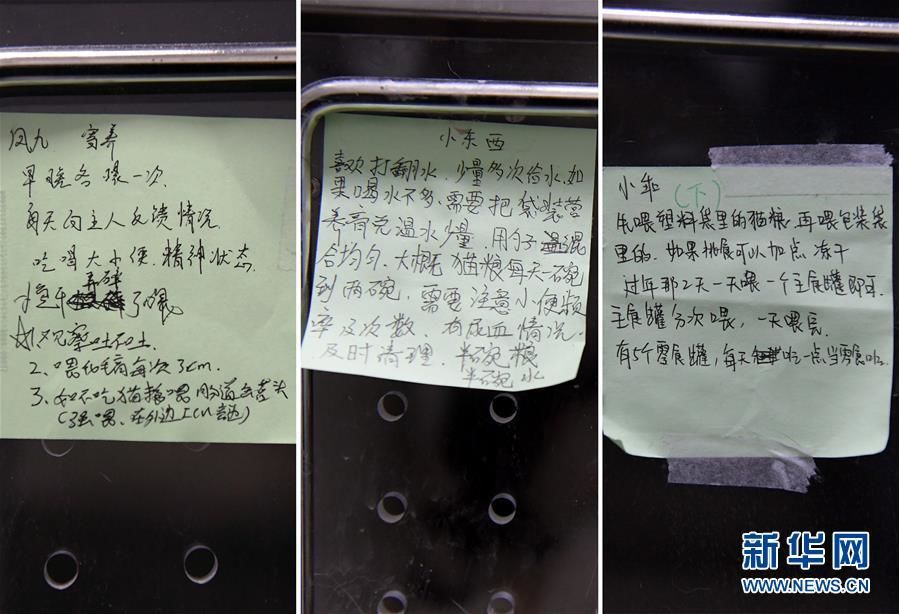 凤九 寄养
早晚各喂一次.
每天向主人反馈情况
吃喝大小便.精神状态.
弄碎
了喂
观察吐不吐.
2、喂化毛膏每次3cm.
3、如不吃猫粮喂
小东西
喜欢打翻水.少量多次给水.如
果喝水不多.需要把袋装营
养膏兑温水少量.用勺子混
合均匀.大概猫粮每天一碗
到两碗,需要注意小便频
率及次数.有尿血情况
及时清理.半碗粮
半碗水
小乖 (下)
先喂塑料袋里的猫粮.再喂包装袋
里的.如果挑食可以加点冻干
过年那2天一天喂一个主食罐即可.
主食罐分次喂,一天喂完.
有5个零食罐,每天吃一点当零食吃.
新华网
WWW.NEWS.CN